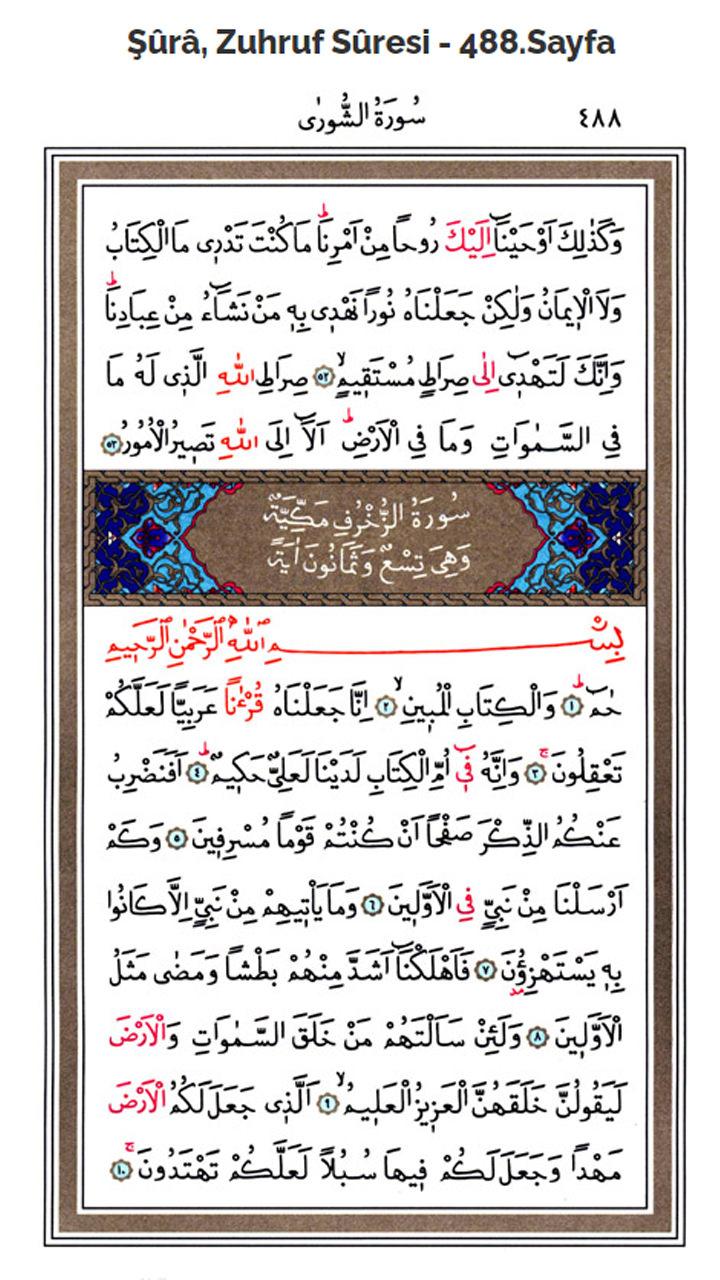 Şûrâ, Zuhruf Sûresi - 488.Sayfa
سُورَةُ الشُّورٰى ٤٨٨
وَكَذٰلِكَ اَوْحَيْنَٓا اِلَيْكَ رُوحاً مِنْ اَمْرِنَاۜ مَا كُنْتَ تَدْر۪ى مَا الْكِتَابُ
وَلَا الْا۪يمَانُ وَلٰكِنْ جَعَلْنَاهُ نُوراً نَهْد۪ى بِه۪ مَنْ نَشَٓاءُ مِنْ عِبَادِنَاۜ
وَاِنَّكَ لَتَهْد۪ٓى اِلٰى صِرَاطٍ مُسْتَق۪يمٍۙ ﴿٥٢﴾ صِرَاطِ اللّٰهِ الَّذ۪ى لَهُ مَا
فِى السَّمٰوَاتِ وَمَا فِى الْاَرْضِۜ اَلَٓا اِلَى اللّٰهِ تَص۪يرُ الْاُمُورُ ﴿٥٣﴾
سُورَةُ الزُّخْرُفِ مَكِّيَّةٌ
وَهِىَ تِسْعٌ وَثَمَانُونَ اٰيَةً
بِسْمِ اللّٰهِ الرَّحْمٰنِ الرَّح۪يمِ
حٰمٓۜ ﴿١﴾ وَالْكِتَابِ الْمُب۪ينِۙ ﴿٢﴾ اِنَّا جَعَلْنَاهُ قُرْءٰناً عَرَبِيًّا لَعَلَّكُمْ
تَعْقِلُونَۚ ﴿٣﴾ وَاِنَّهُ ف۪ٓى اُمِّ الْكِتَابِ لَدَيْنَا لَعَلِىٌّ حَك۪يمٌۜ ﴿٤﴾ اَفَنَضْرِبُ
عَنْكُمُ الذِّكْرَ صَفْحاً اَنْ كُنْتُمْ قَوْماً مُسْرِف۪ينَ ﴿٥﴾ وَكَمْ
اَرْسَلْنَا مِنْ نَبِىٍّ فِى الْاَوَّل۪ينَ ﴿٦﴾ وَمَا يَاْت۪يهِمْ مِنْ نَبِىٍّ اِلَّا كَانُوا
بِه۪ يَسْتَهْزِؤُ۫نَ ﴿٧﴾ فَاَهْلَكْنَٓا اَشَدَّ مِنْهُمْ بَطْشاً وَمَضٰى مَثَلُ
الْاَوَّل۪ينَ ﴿٨﴾ وَلَئِنْ سَاَلْتَهُمْ مَنْ خَلَقَ السَّمٰوَاتِ وَالْاَرْضَ
لَيَقُولُنَّ خَلَقَهُنَّ الْعَز۪يزُ الْعَل۪يمُۙ ﴿٩﴾ اَلَّذ۪ى جَعَلَ لَكُمُ الْاَرْضَ
مَهْداً وَجَعَلَ لَكُمْ ف۪يهَا سُبُلاً لَعَلَّكُمْ تَهْتَدُونَۚ ﴿١٠﴾